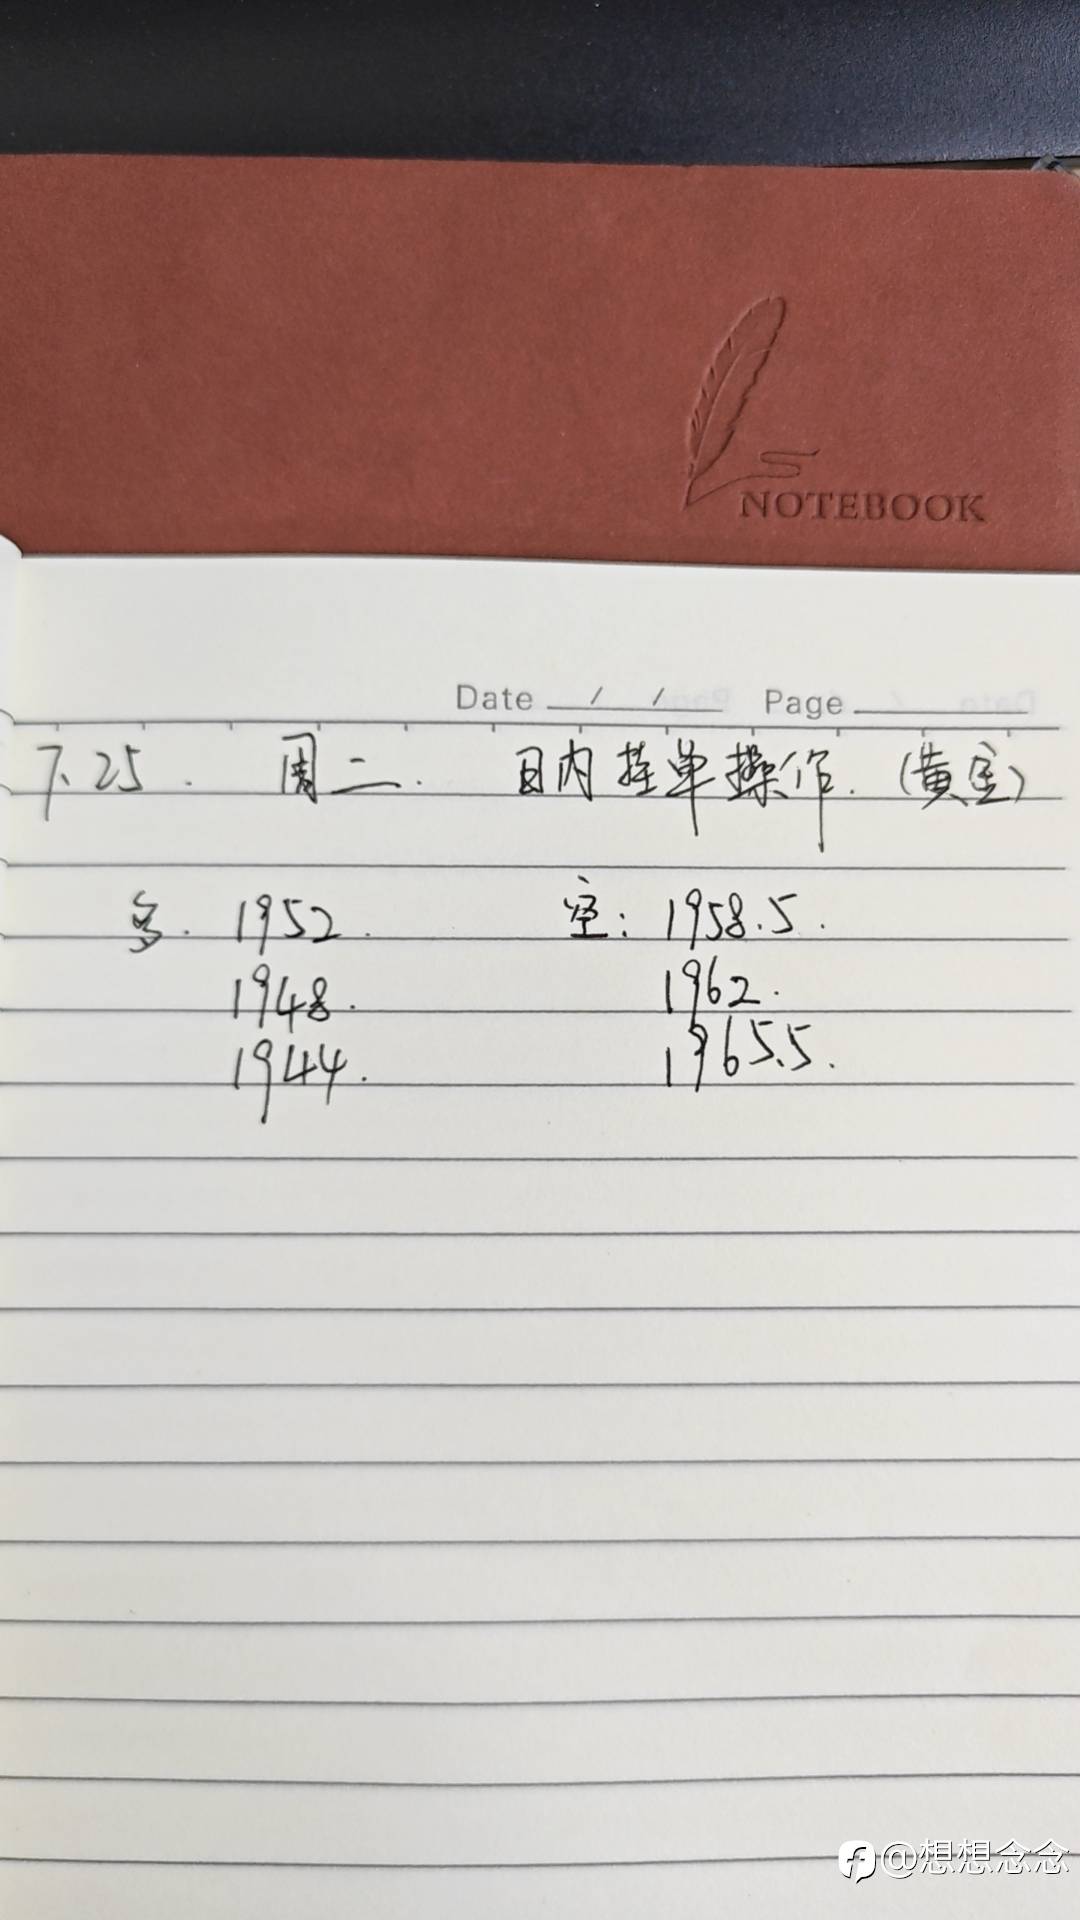 NOTEBOOK
Date / / Page
7.25. 周二. 日内挂单操作.(黄金)
多. 1952. 空: 1958.5.
1948. 1962.
1944. 1965.5.
@想想念念